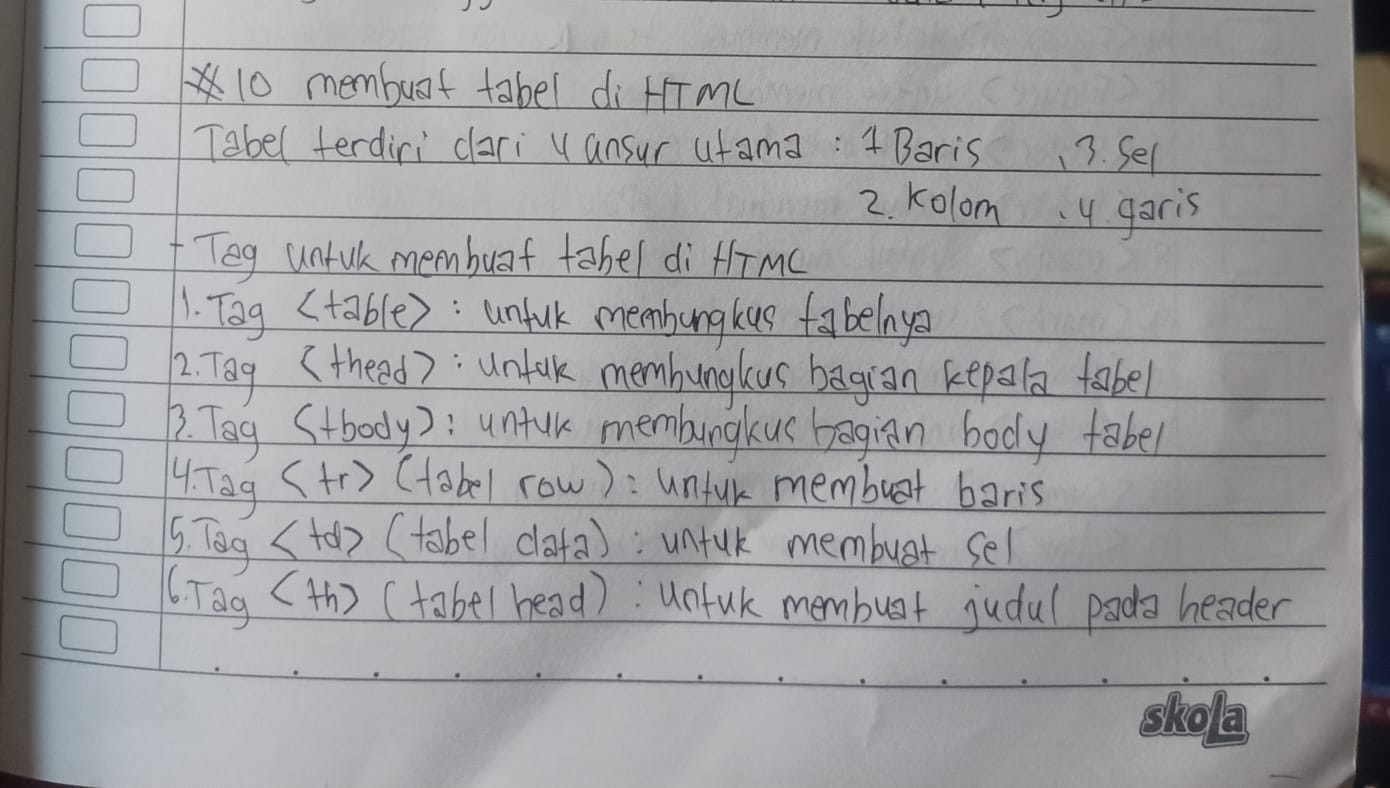 #10 membuat tabel di HTML
Tabel terdiri dari 4 unsur utama : 1 Baris , 3. Sel
2. Kolom , 4. garis
+ Tag untuk membuat tabel di HTML
1. Tag <table> : untuk membungkus tabelnya
2. Tag <thead> : untuk membungkus bagian kepala tabel
3. Tag <tbody> : untuk membungkus bagian body tabel
4. Tag <tr> (tabel row) : untuk membuat baris
5. Tag <td> (tabel data) : untuk membuat sel
6. Tag <th> (tabel head) : untuk membuat judul pada header
skola